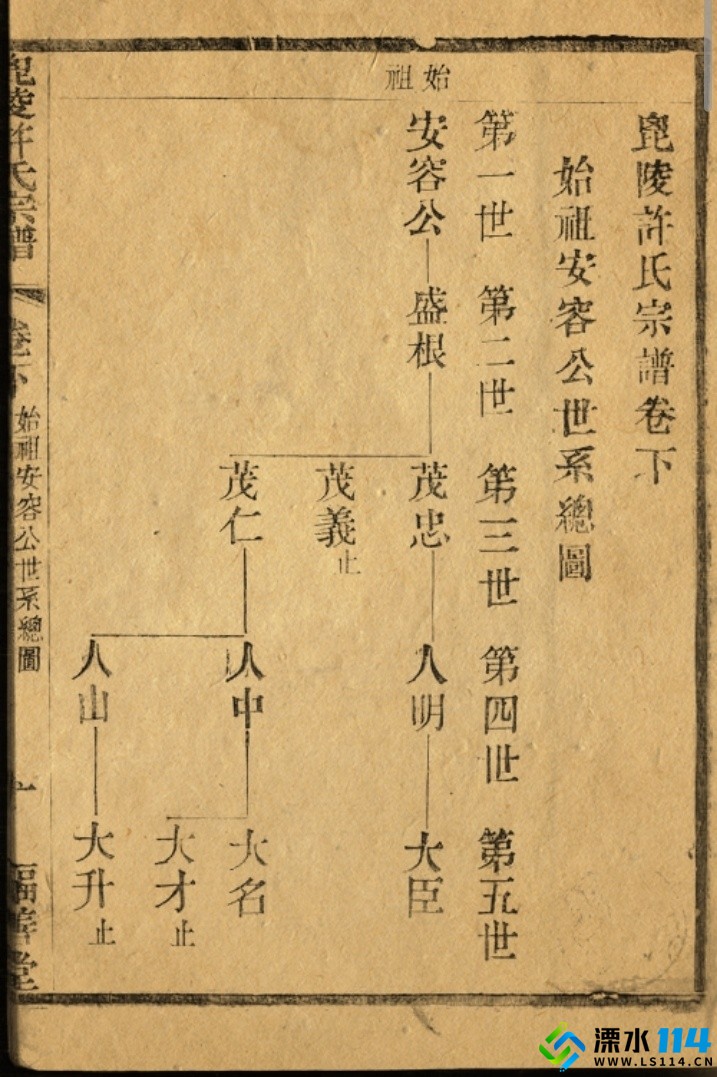 毘陵許氏宗譜卷下
始祖安容公世系總圖
第一世 第二世 第三世 第四世 第五世
始祖
安容公 盛根 茂忠 人明 大臣
茂義 止
茂仁 人中 大名
大才 止
人山 大升 止
毘陵許氏宗譜 卷下 始祖安容公世系總圖 一 善堂
溧水114
WWW.LS114.CN